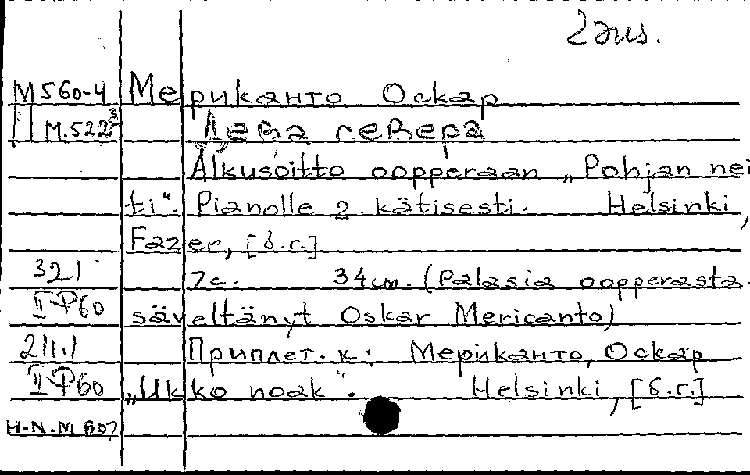 2 экз.
М560-4 Мериканто Оскар
М.522 Дева севера
Alkusoitto oopperaan „Pohjan nei
ti“. Pianolle 2 kätisesti. Helsinki,
Fazer, [б.г.]
321 7с. 34см. (Palasia oopperasta.
II Ф60 säveltänyt Oskar Mericanto)
211.1 Приплет. к: Мериканто, Оскар
II Ф60 „Ukko noak“. Helsinki, [б.г.]